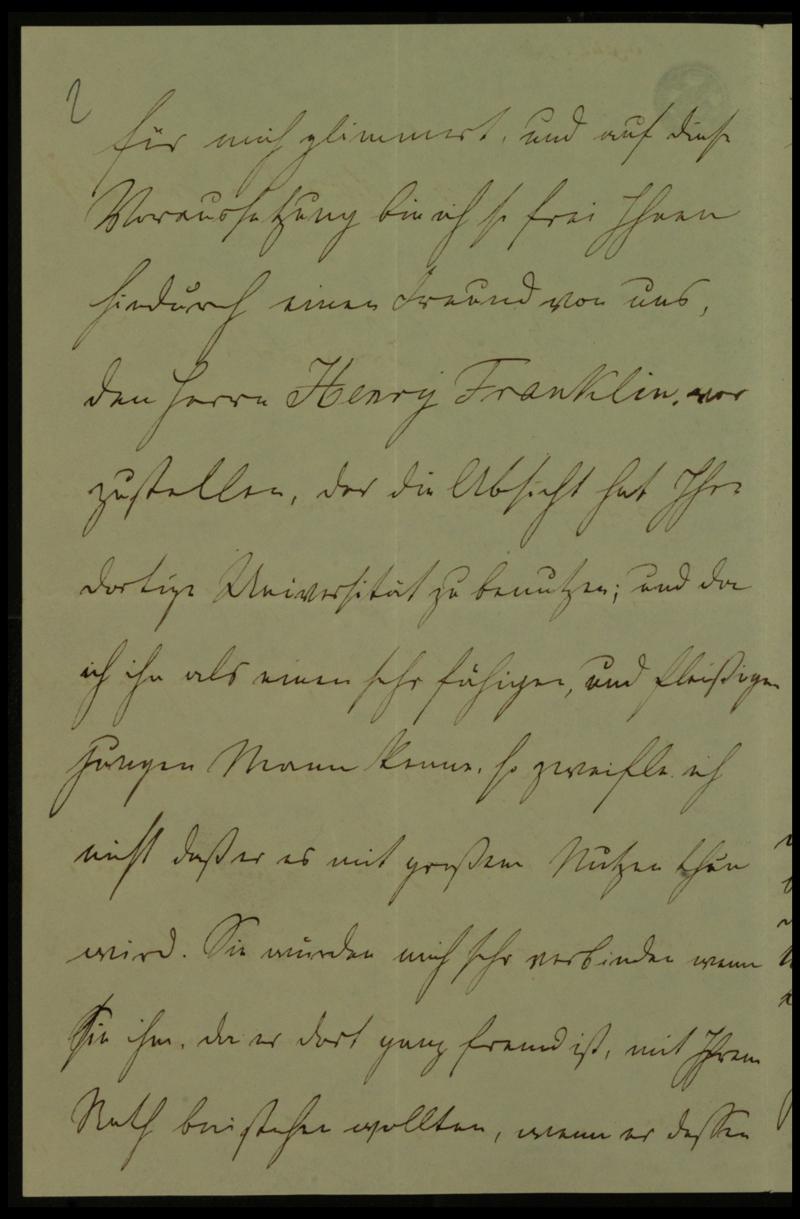 2
für mich glimmert, und auf diese
Voraussetzung bin ich so frei Ihnen
hiedurch einen Freund von uns,
den Herrn Henry Franklin, vor
zustellen, der die Absicht hat Ihre
dortige Universität zu benutzen; und da
ich ihn als einen sehr fähigen, und fleißigen
jungen Mann kenne, so zweifle ich
nicht daß er es mit großem Nutzen thun
wird. Sie würden mich sehr verbinden wenn
Sie ihm, da er dort ganz fremd ist, mit Ihrem
Rath beistehen wollten, wenn er dessen